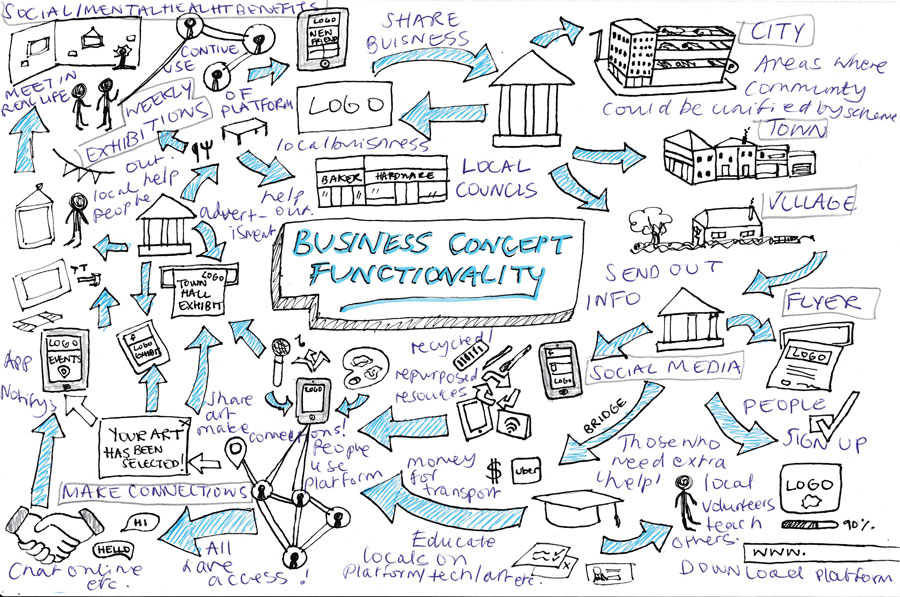 SOCIAL/MENTAL HEALTH BENEFITS
MEET IN
REAL LIFE
CONTIVE
USE
OF
PLATFORM
LOGO
NEW
FRIEND
SHARE
BUISNESS
CITY
Areas where
community
could be unified by scheme
WEEKLY
EXHIBITIONS
LOGO
local buisness
BAKER
HARDWARE
LOCAL
COUNCLS
TOWN
VCLLAGE
out.
local help
people
advert-
isment
help
out.
BUSINESS CONCEPT
FUNCTIONALITY
SEND OUT
INFO
FLYER
LOGO
TOWN
HALL
EXHIBIT
LOGO
EVENTS
App
Notifys
LOGO
EXHIBIT
LOGO
recycled!
repurposed
resources
LOGO
SOCIAL MEDIA
LOGO
PEOPLE
SIGN UP
Share
art
make
connections!
People
use
platform
YOUR ART
HAS BEEN
SELECTED!
X
MAKE CONNECTIONS
money
for
transport
$
uber
BRIDGE
Those who
need extra
help!
local
volunteers
teach
others.
LOGO
90%
WWW.
DOWNLOAD platform
HI
HELLO
Chat online
etc.
All
have
access!
Educate
locals on
Platform/tech/art etc.